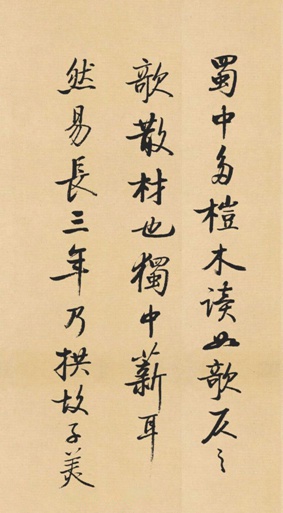 蜀中多榿木读如欹仄之
欹散材也獨中薪耳
然易長三年乃拱故子美